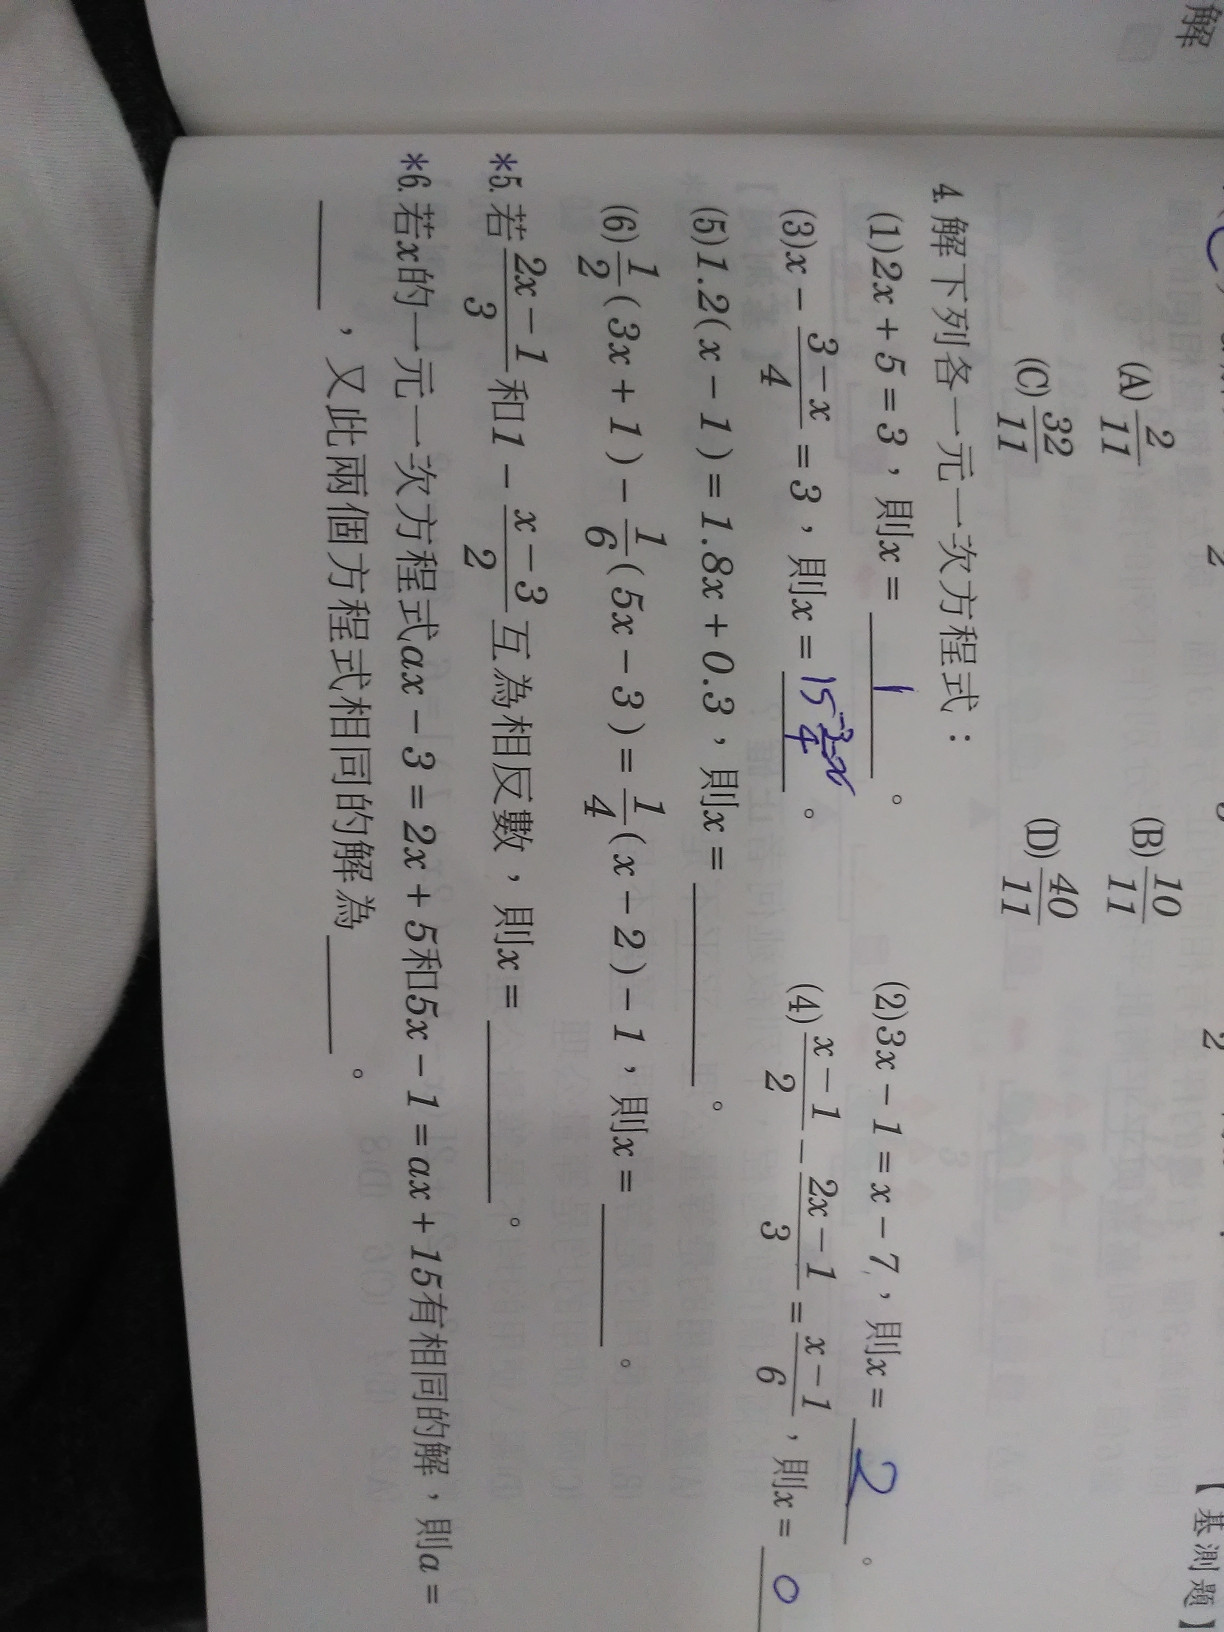 解
(A) 2/11 (B) 10/11
(C) 32/11 (D) 40/11
【基測題】
4. 解下列各一元一次方程式：
(1) 2x + 5 = 3，則x = 1 。 (2) 3x − 1 = x − 7，則x = 2 。
(3) x − (3 − x)/4 = 3，則x = 15 。 (4) (x − 1)/2 − (2x − 1)/3 = (x − 1)/6，則x = 0
(5) 1.2(x − 1) = 1.8x + 0.3，則x = ______。
(6) 1/2(3x + 1) − 1/6(5x − 3) = 1/4(x − 2) − 1，則x = ______。
*5. 若(2x − 1)/3和1 − (x − 3)/2互為相反數，則x = ______。
*6. 若x的一元一次方程式ax − 3 = 2x + 5和5x − 1 = ax + 15有相同的解，則a =
______，又此兩個方程式相同的解為______。